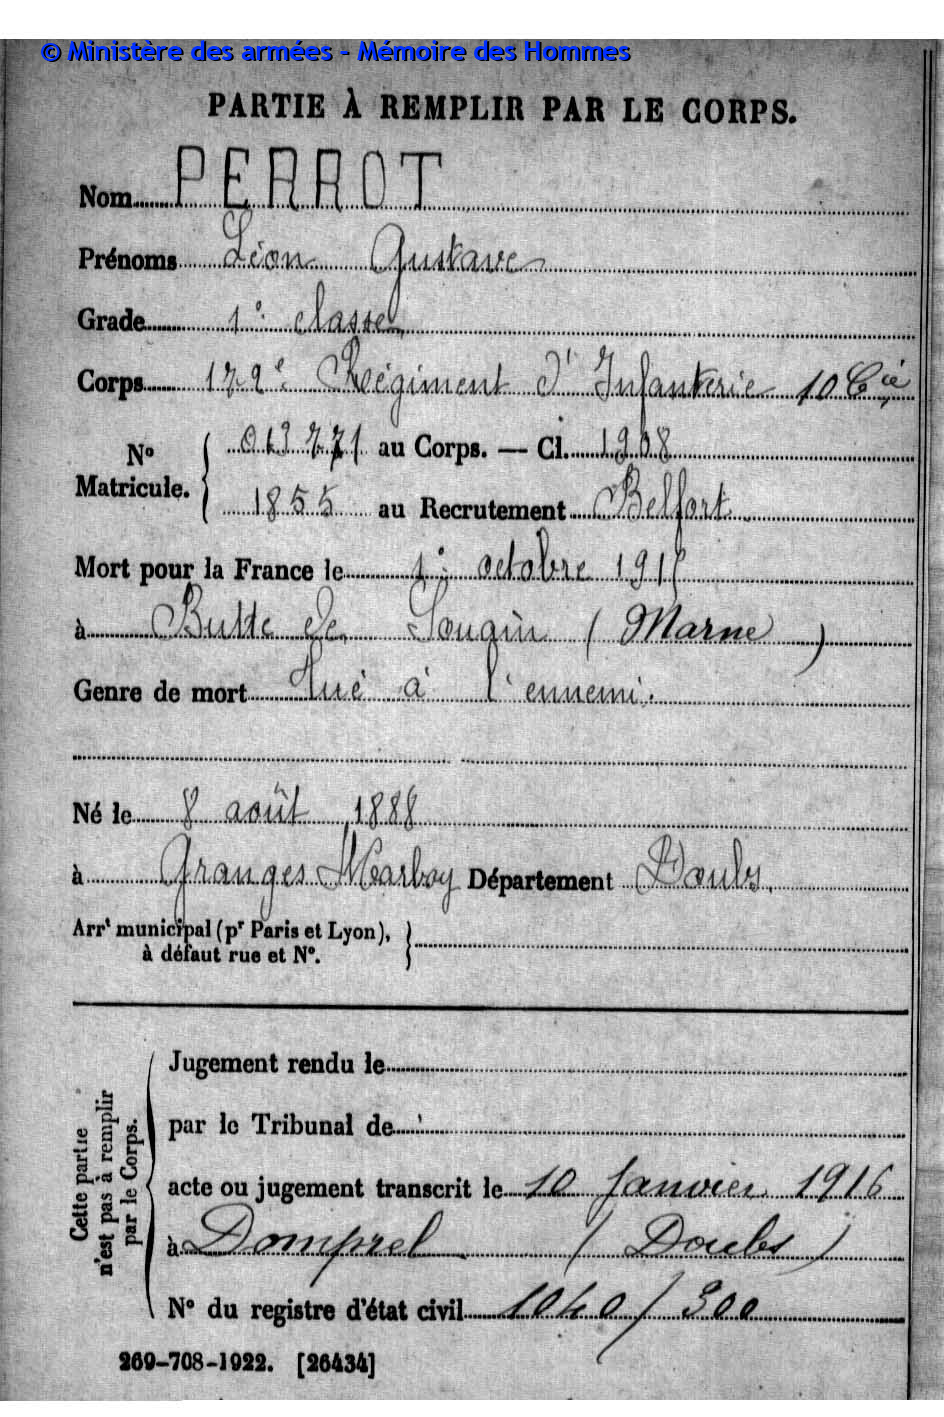 © Ministère des armées - Mémoire des Hommes
PARTIE À REMPLIR PAR LE CORPS.
Nom PERROT
Prénoms Léon Gustave
Grade 1e classe
Corps 172e Régiment d'Infanterie 10 Cie
No Matricule. 013771 au Corps. — Cl. 1908
1855 au Recrutement Belfort
Mort pour la France le 1e octobre 1915
à Butte de Souain (Marne)
Genre de mort Tué à l'ennemi.
Né le 8 août 1888
à Granges Marboy Département Doubs.
Arrt municipal (pr Paris et Lyon),
à défaut rue et No.
Cette partie
n'est pas à remplir
par le Corps.
Jugement rendu le
par le Tribunal de
acte ou jugement transcrit le 10 Janvier 1916
à Domprel (Doubs)
No du registre d'état civil 1040/300
269-708-1922. [26434]